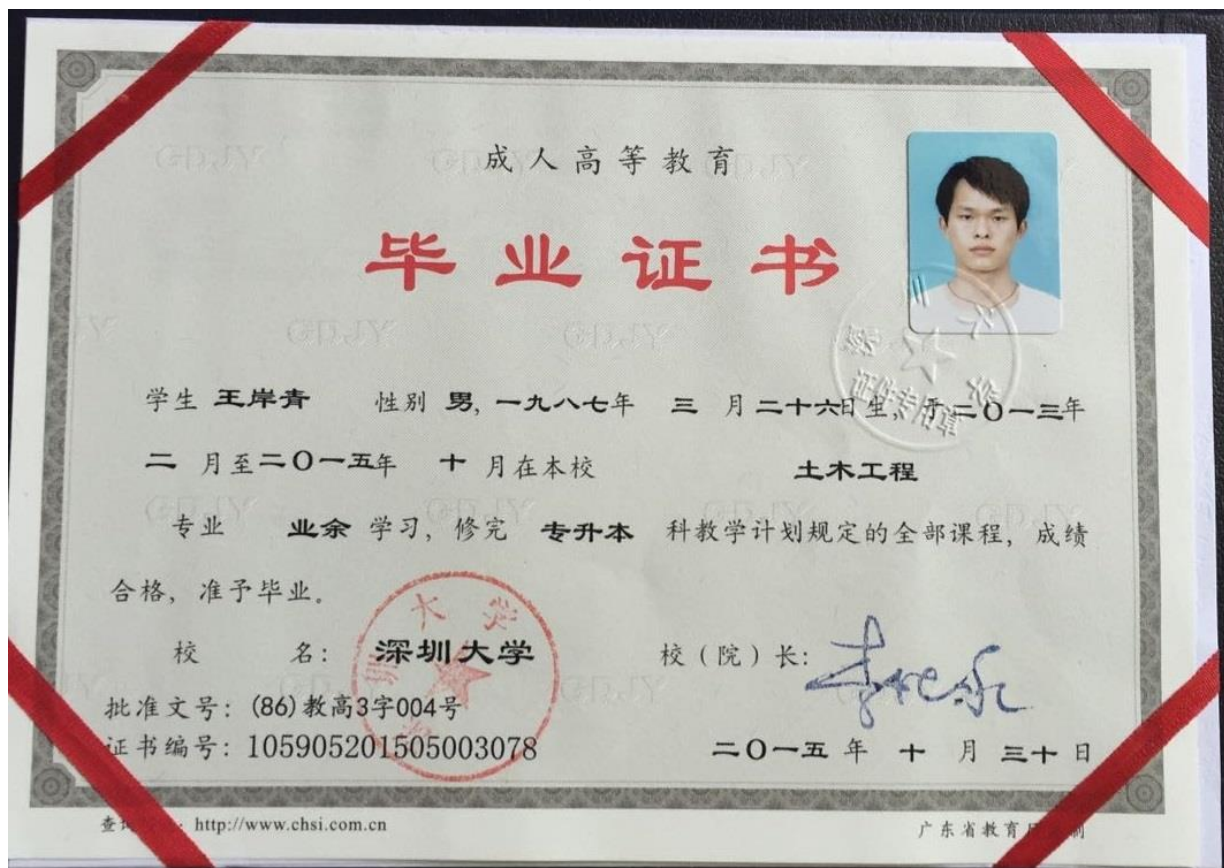 成人高等教育
毕业证书
学生 王岸青 性别 男, 一九八七年 三 月二十六日生, 于二〇一三年
二 月至二〇一五年 十 月在本校 土木工程
专业 业余 学习, 修完 专升本 科教学计划规定的全部课程, 成绩
合格, 准予毕业。
校 名: 深圳大学 校(院)长:
批准文号: (86)教高3字004号
证书编号: 105905201505003078 二〇一五 年 十 月 三十 日
http://www.chsi.com.cn 广东省教育
证件专用章
GDJY